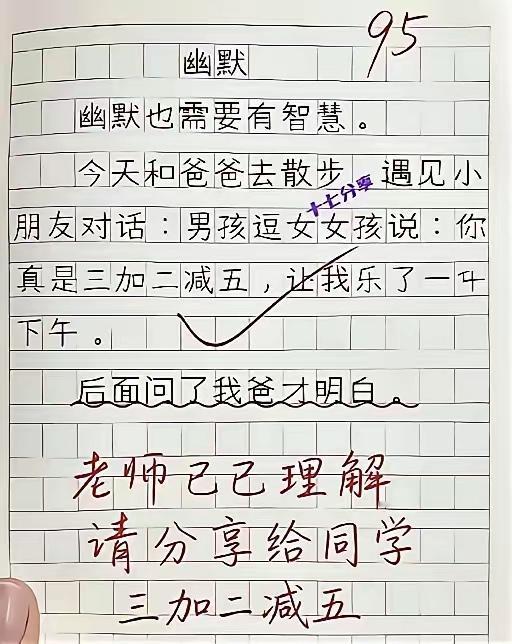 95
幽默
幽默也需要有智慧。
今天和爸爸去散步,遇见小
十七分享
朋友对话:男孩逗女女孩说:你
真是三加二减五,让我乐了一
下午。
后面问了我爸才明白。
老师已已理解
请分享给同学
三加二减五